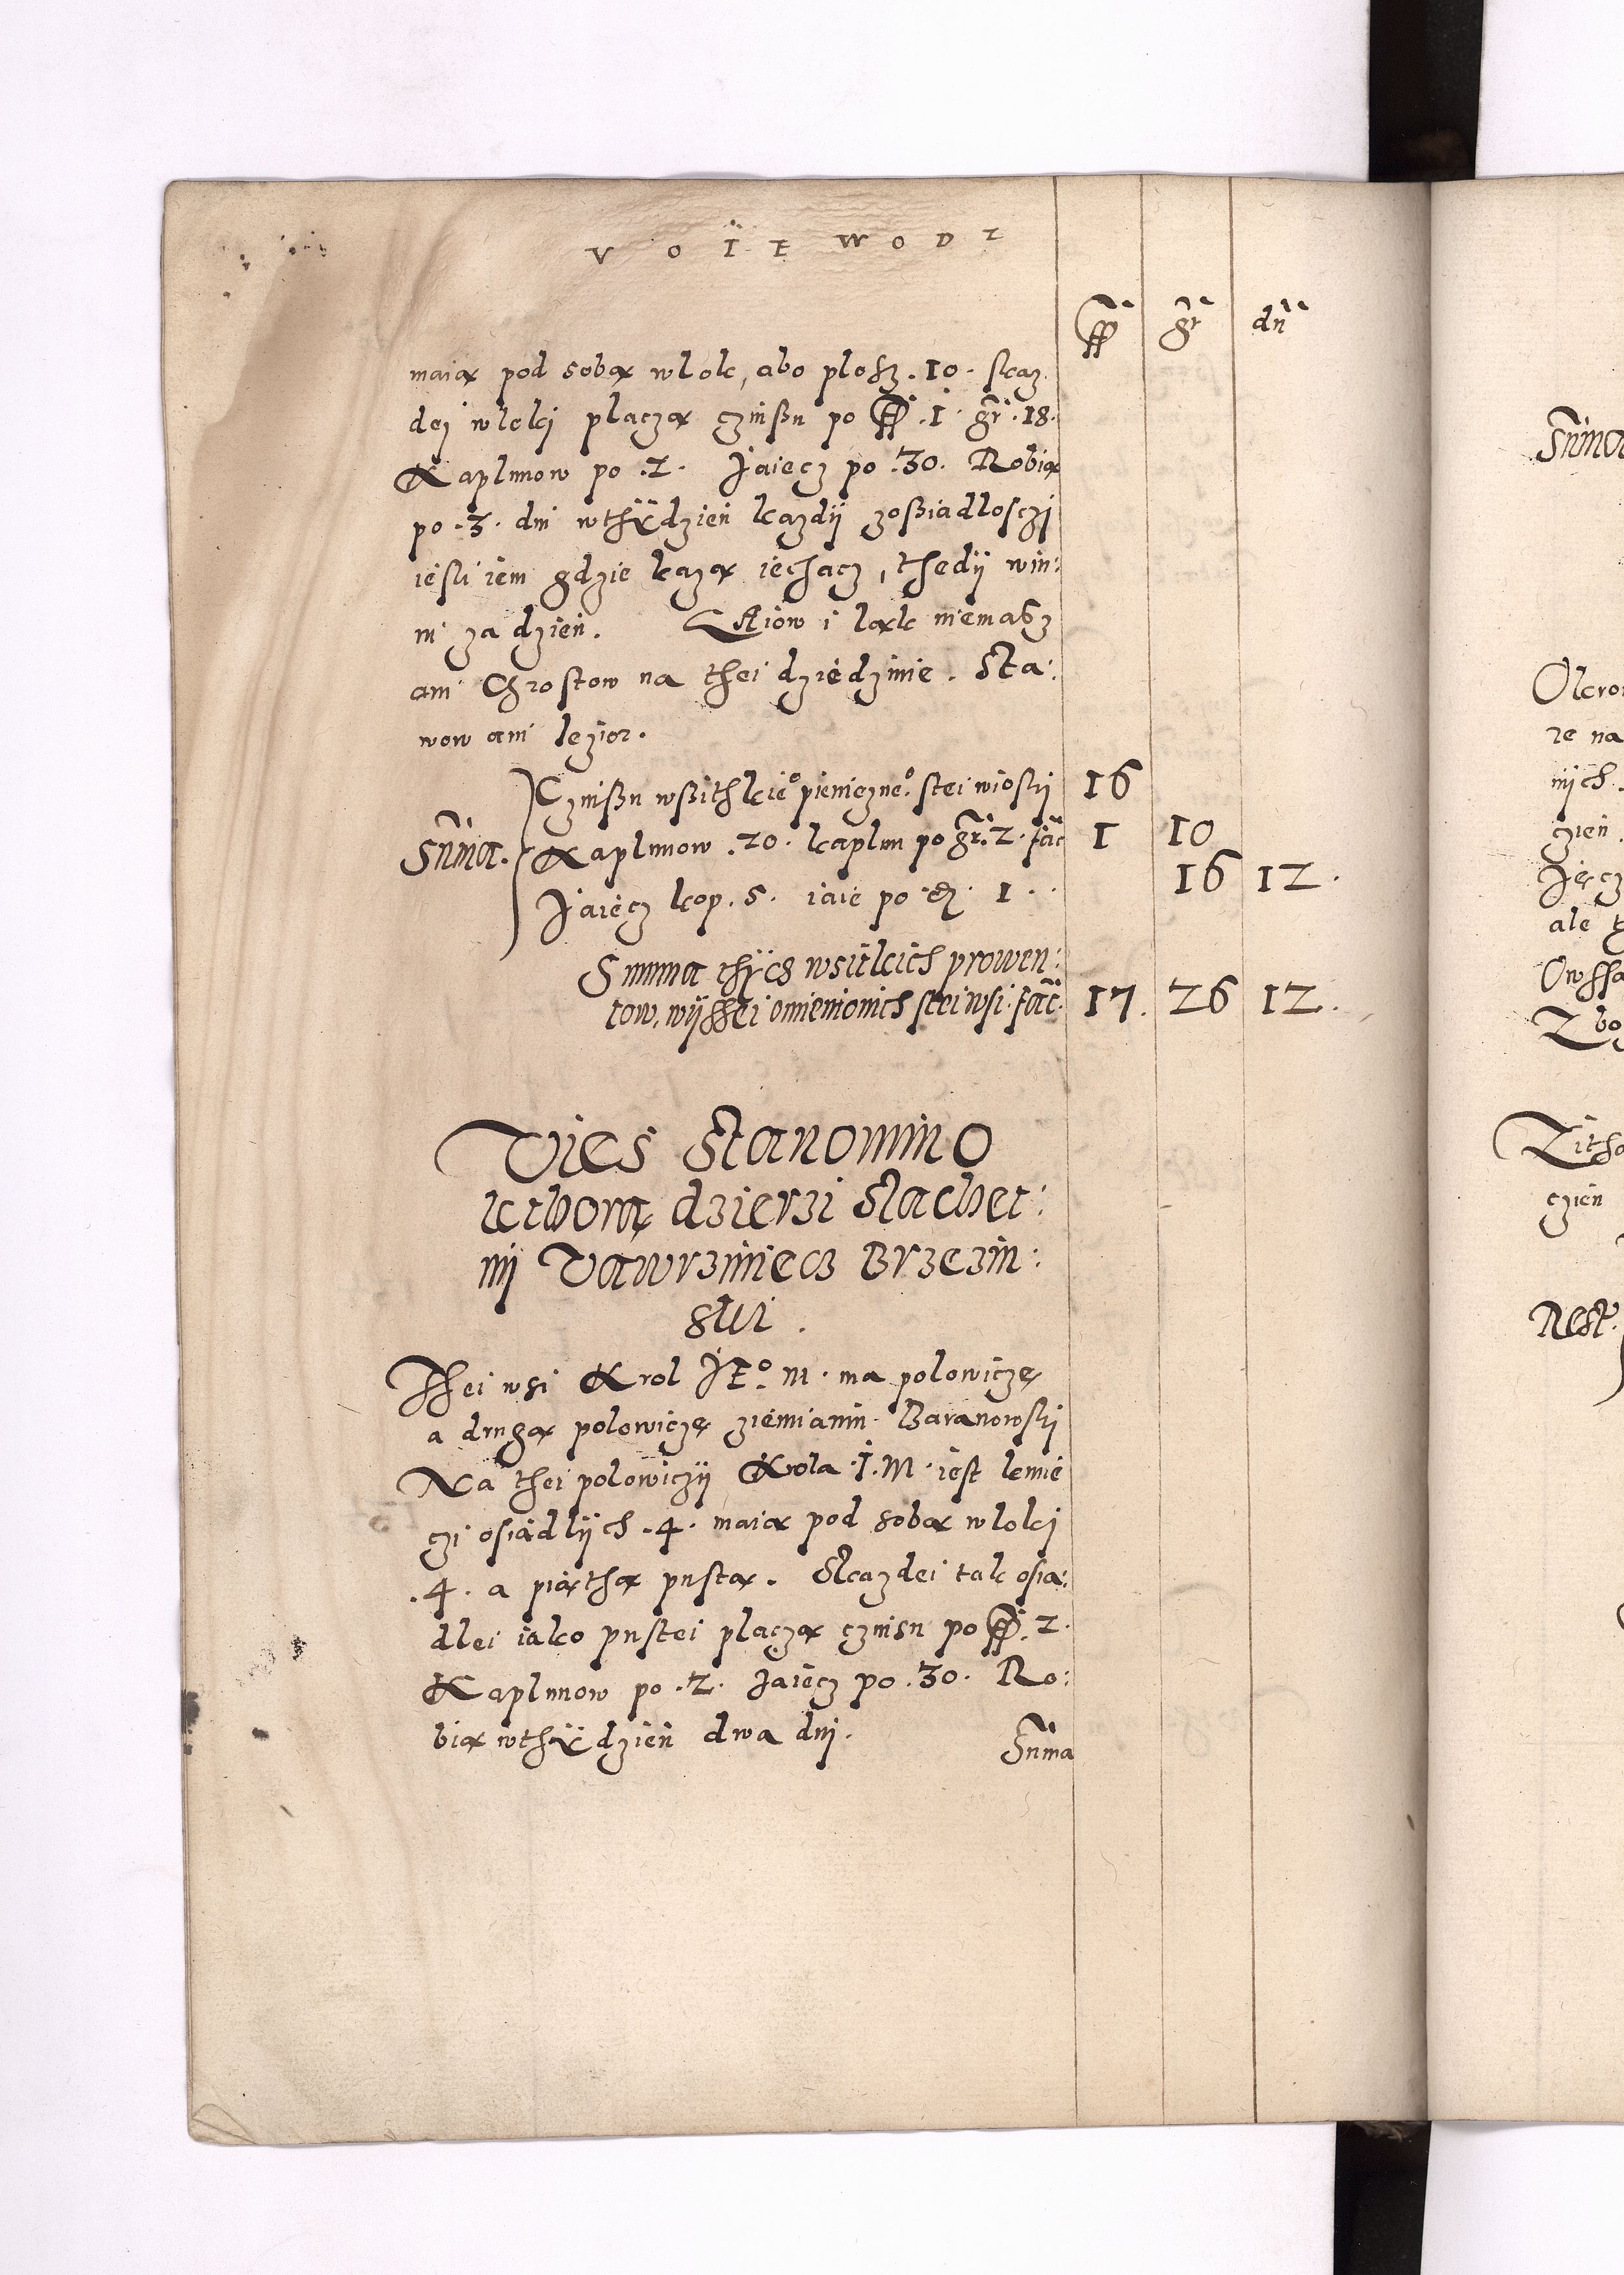 VOIEWODZ
ff gr dn
maią pod sobą wlok, abo plosz .10. skaz
dej wlokj placzą czinßu po ff .1. gr .18.
Kaplunow po .2. Jaiecz po .30. Robią
po .3. dni wthÿdzien kazdÿ zoßiadlosczj
iesli iem gdzie kazą iechacz, thedÿ win:
ni za dzien. Gaiow i ląk niemaßz
ani Chrostow na thei dziedzinie. Sta:
wow ani Iezior.
Suma.
Czinßu wßithkie° pieniezne° stei wioski 16
Kaplunow .20. kaplun po gr. 2. fac 1 10
Jaiecz kop. 5. iaie po 1 16 12.
Summa thÿcs wsitkich prowen:
tow, wÿssei omienionich stei wsi. fac. 17. 26 12.
Vies Stanomino
kthorą dzierzi Slachet:
nÿ Vawrziniecz Brzezin:
ski.
Thei wsi Krol JE° M. ma polowiczę
a drugą polowiczę ziemianin Baranowski
Na thei polowiczÿ Krola I.M. iest kmie
czi osiadlÿch .4. maią pod sobą wlokj
.4. a piąthą pustą. Skazdei tak osia:
dlei iako pustei placzą czinsu po ff. 2.
Kaplunow po .2. Jaiecz po .30. Ro:
bią wthÿdzien dwa dnj.
Suma
Suma
Okro
re na
nÿch.
zien.
ale
Owssa
Zbo
czien
Rest.